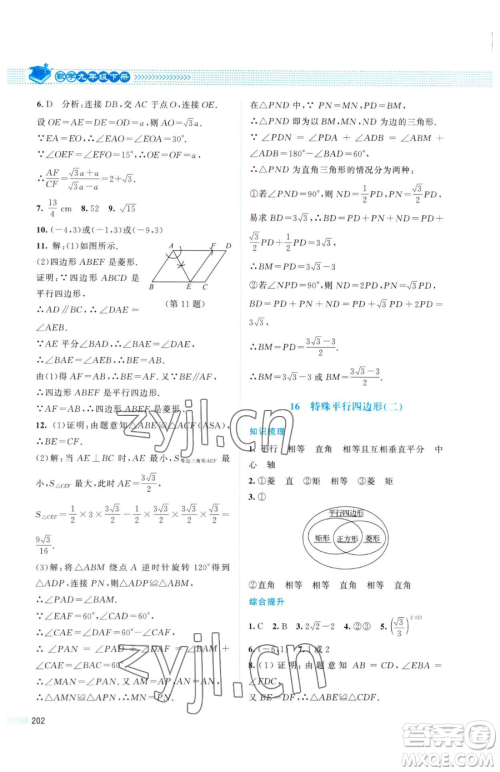 数学九年级下册
6. D 分析:连接DB,交AC于点O,连接OE.
设OE=AE=DE=a.
∵∠EAO=30°,
∵∠OEF=∠EFO=15°,∴OE=OF=a.
∴AF/CF=(√3a+a)/(√3a-a)=2+√3.
7. 13/4 cm 8. 52 9. √15
10. (-4,3)或(-1,3)或(-9,3)
11. 解:(1)如图所示.
(2)四边形ABEF是菱形.
证明:∵四边形ABCD是
平行四边形,
∴AD∥BC,∴∠DAE=
∠AEB.
A F D
B E C
(第11题)
∵AE平分∠BAD,∴∠BAE=∠DAE.
∴∠BAE=∠AEB.∴BE=AB.
由(1)得AF=AB,∴BE=AF.
又∵BE∥AF,∴四边形ABEF是平行四边形.
∵AF=AB,∴四边形ABEF是菱形.
12. (1)证明略:△ABE≌△ACF(ASA).
(2)解:当AE⊥BC时,AE最小,S等边三角形AEF最小,
∵S△CEF=
S△CEF=1/2×3×3√3/2-1/2×3√3/2×3√3/2×√3/2=
9√3/16.
(3)解:将△ABM绕点A逆时针旋转120°得到
△ADP,连接PN,则△ADP≌△ABM.
∴∠PAD=∠BAM.
∵∠CAD=60°,∴∠DAF=60°-∠CAF.
∴∠PAN=∠PAD+∠DAF=∠BAM+
60°-∠CAF=60°.
∴∠MAN=∠PAN=60°.
∴△AMN≌△APN.∴MN=PN.
在△PND中,∵PD=BM,PN=MN,
∴△PND是以BM,MN,ND为边的三角形.
∵∠PDN=∠PDA+∠ADB=∠ABM+
∠ADB=180°-∠BAD=60°,
∴△PND为直角三角形的情况分为两种.
①若∠PND=90°,则ND=1/2PD,PN=√3/2PD,
易求BD=3√3,∴BM+MN+ND=PD+
√3/2PD+1/2PD=3√3.
∴BM=PD=3√3-3.
②若∠NPD=90°,则ND=2PD,PN=√3PD,
∴BD=BM+MN+ND=PD+√3PD+2PD=
3√3,
∴BM=PD=(3√3-3)/2.
综上,BM的值为3√3-3或(3√3-3)/2.
16 特殊平行四边形(二)
知识梳理
1. 平行 相等 直角 相等且互相垂直平分 中
心 轴
2. ①菱 直 ②矩 相等 ③矩 ④菱
3. ①
平行四边形
矩形 正方形 菱形
②直角 相等 相等 直角 直角 相等
综合提升
1. C 2. B 3. 2√2-2 4. ②③ 5. (√3/3)^2 021
6. (-6,1) 7. 2
8. (1)证明:由题意可知AB=CD,∠EBA=
∠FDC=60°,BE=DF.
202